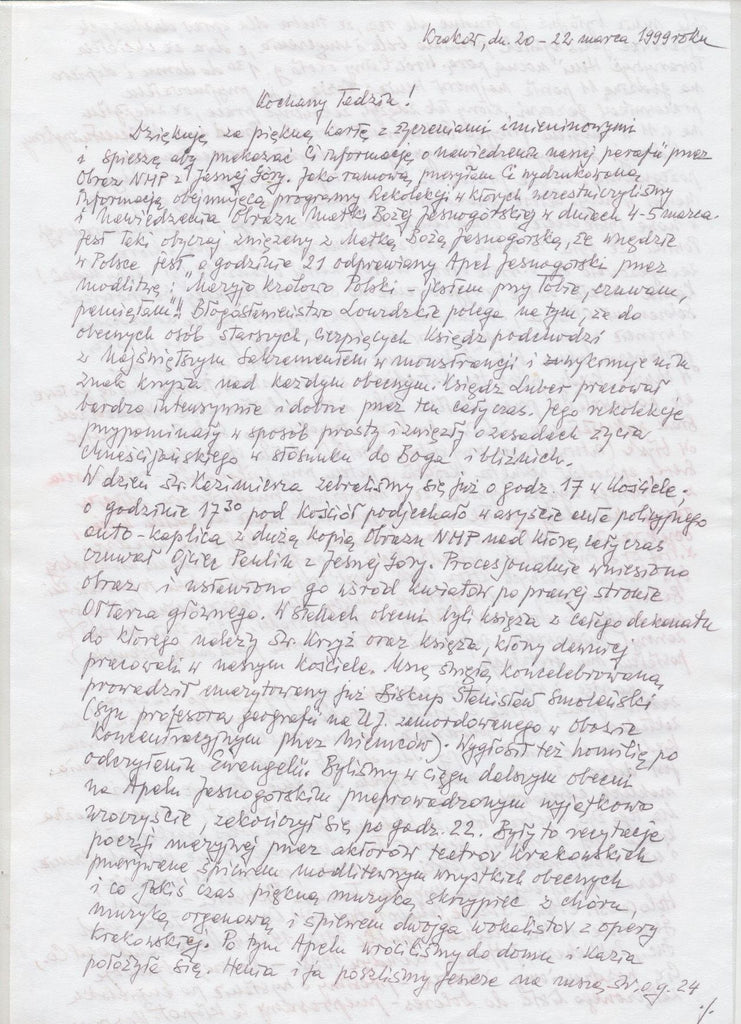 Kraków, dn. 20 – 22 marca 1999 roku
Kochany Tadziu!
Dziękuję za piękną kartę z życzeniami imieninowymi
i spieszę aby przekazać Ci informację o nawiedzeniu naszej parafii przez
Obraz NMP z Jasnej Góry. Jako ramową przesyłam Ci wydrukowaną
informację obejmującą programy Rekolekcji w których uczestniczyliśmy
i Nawiedzenia Obrazu Matki Bożej Jasnogórskiej w dniach 4-5 marca.
Jest taki obyczaj związany z Matką Bożą Jasnogórską, że wszędzie
w Polsce jest o godzinie 21 odprawiany Apel Jasnogórski przez
modlitwę: „Maryjo Królowo Polski – jestem przy Tobie, czuwam,
pamiętam”! Błogosławieństwo Lourdzkie polega na tym, że do
obecnych osób, starszych, cierpiących Ksiądz podchodzi
z Najświętszym Sakramentem w monstrancji i wykonuje nim
znak krzyża nad każdym obecnym. Ksiądz Luber pracował
bardzo intensywnie i dobrze przez ten cały czas. Jego rekolekcje
przypominały w sposób prosty i zwięzły o zasadach życia
chrześcijańskiego w stosunku do Boga i bliźnich.
W dzień św. Kazimierza zebraliśmy się już o godz. 17 w Kościele;
o godzinie 17 30 pod Kościół podjechało w asyście auta policyjnego
auto-kaplica z dużą kopią Obrazu NMP nad którą cały czas
czuwał Ojciec Paulin z Jasnej Góry. Procesjonalnie wniesiono
obraz i ustawiono go wśród kwiatów po prawej stronie
Ołtarza głównego. W stallach obecni byli księża z całego dekanatu
do którego należy Św. Krzyż oraz Księża, którzy dawniej
pracowali w naszym Kościele. Mszę świętą koncelebrowaną
prowadził emerytowany już Biskup Stanisław Smoleński
(syn profesora geografii na UJ. zamordowanego w obozie
Koncentracyjnym przez Niemców). Wygłosił też homilię po
odczytaniu Ewangelii. Byliśmy w ciągu dalszym obecni
na Apelu Jasnogórskim przeprowadzonym wyjątkowo
uroczyście, zakończył się po godz. 22. Były to recytacje
poezji maryjnej przez aktorów teatrów Krakowskich
przerywane śpiewem modlitewnym wszystkich obecnych
i co jakiś czas piękną muzyką skrzypiec z chóru,
muzyką organową i śpiewem dwojga wokalistów z opery
Krakowskiej. Po tym Apelu wróciliśmy do domu i Kazia
położyła się. Henia i ja poszliśmy jeszcze na mszę św. o g. 24
./.